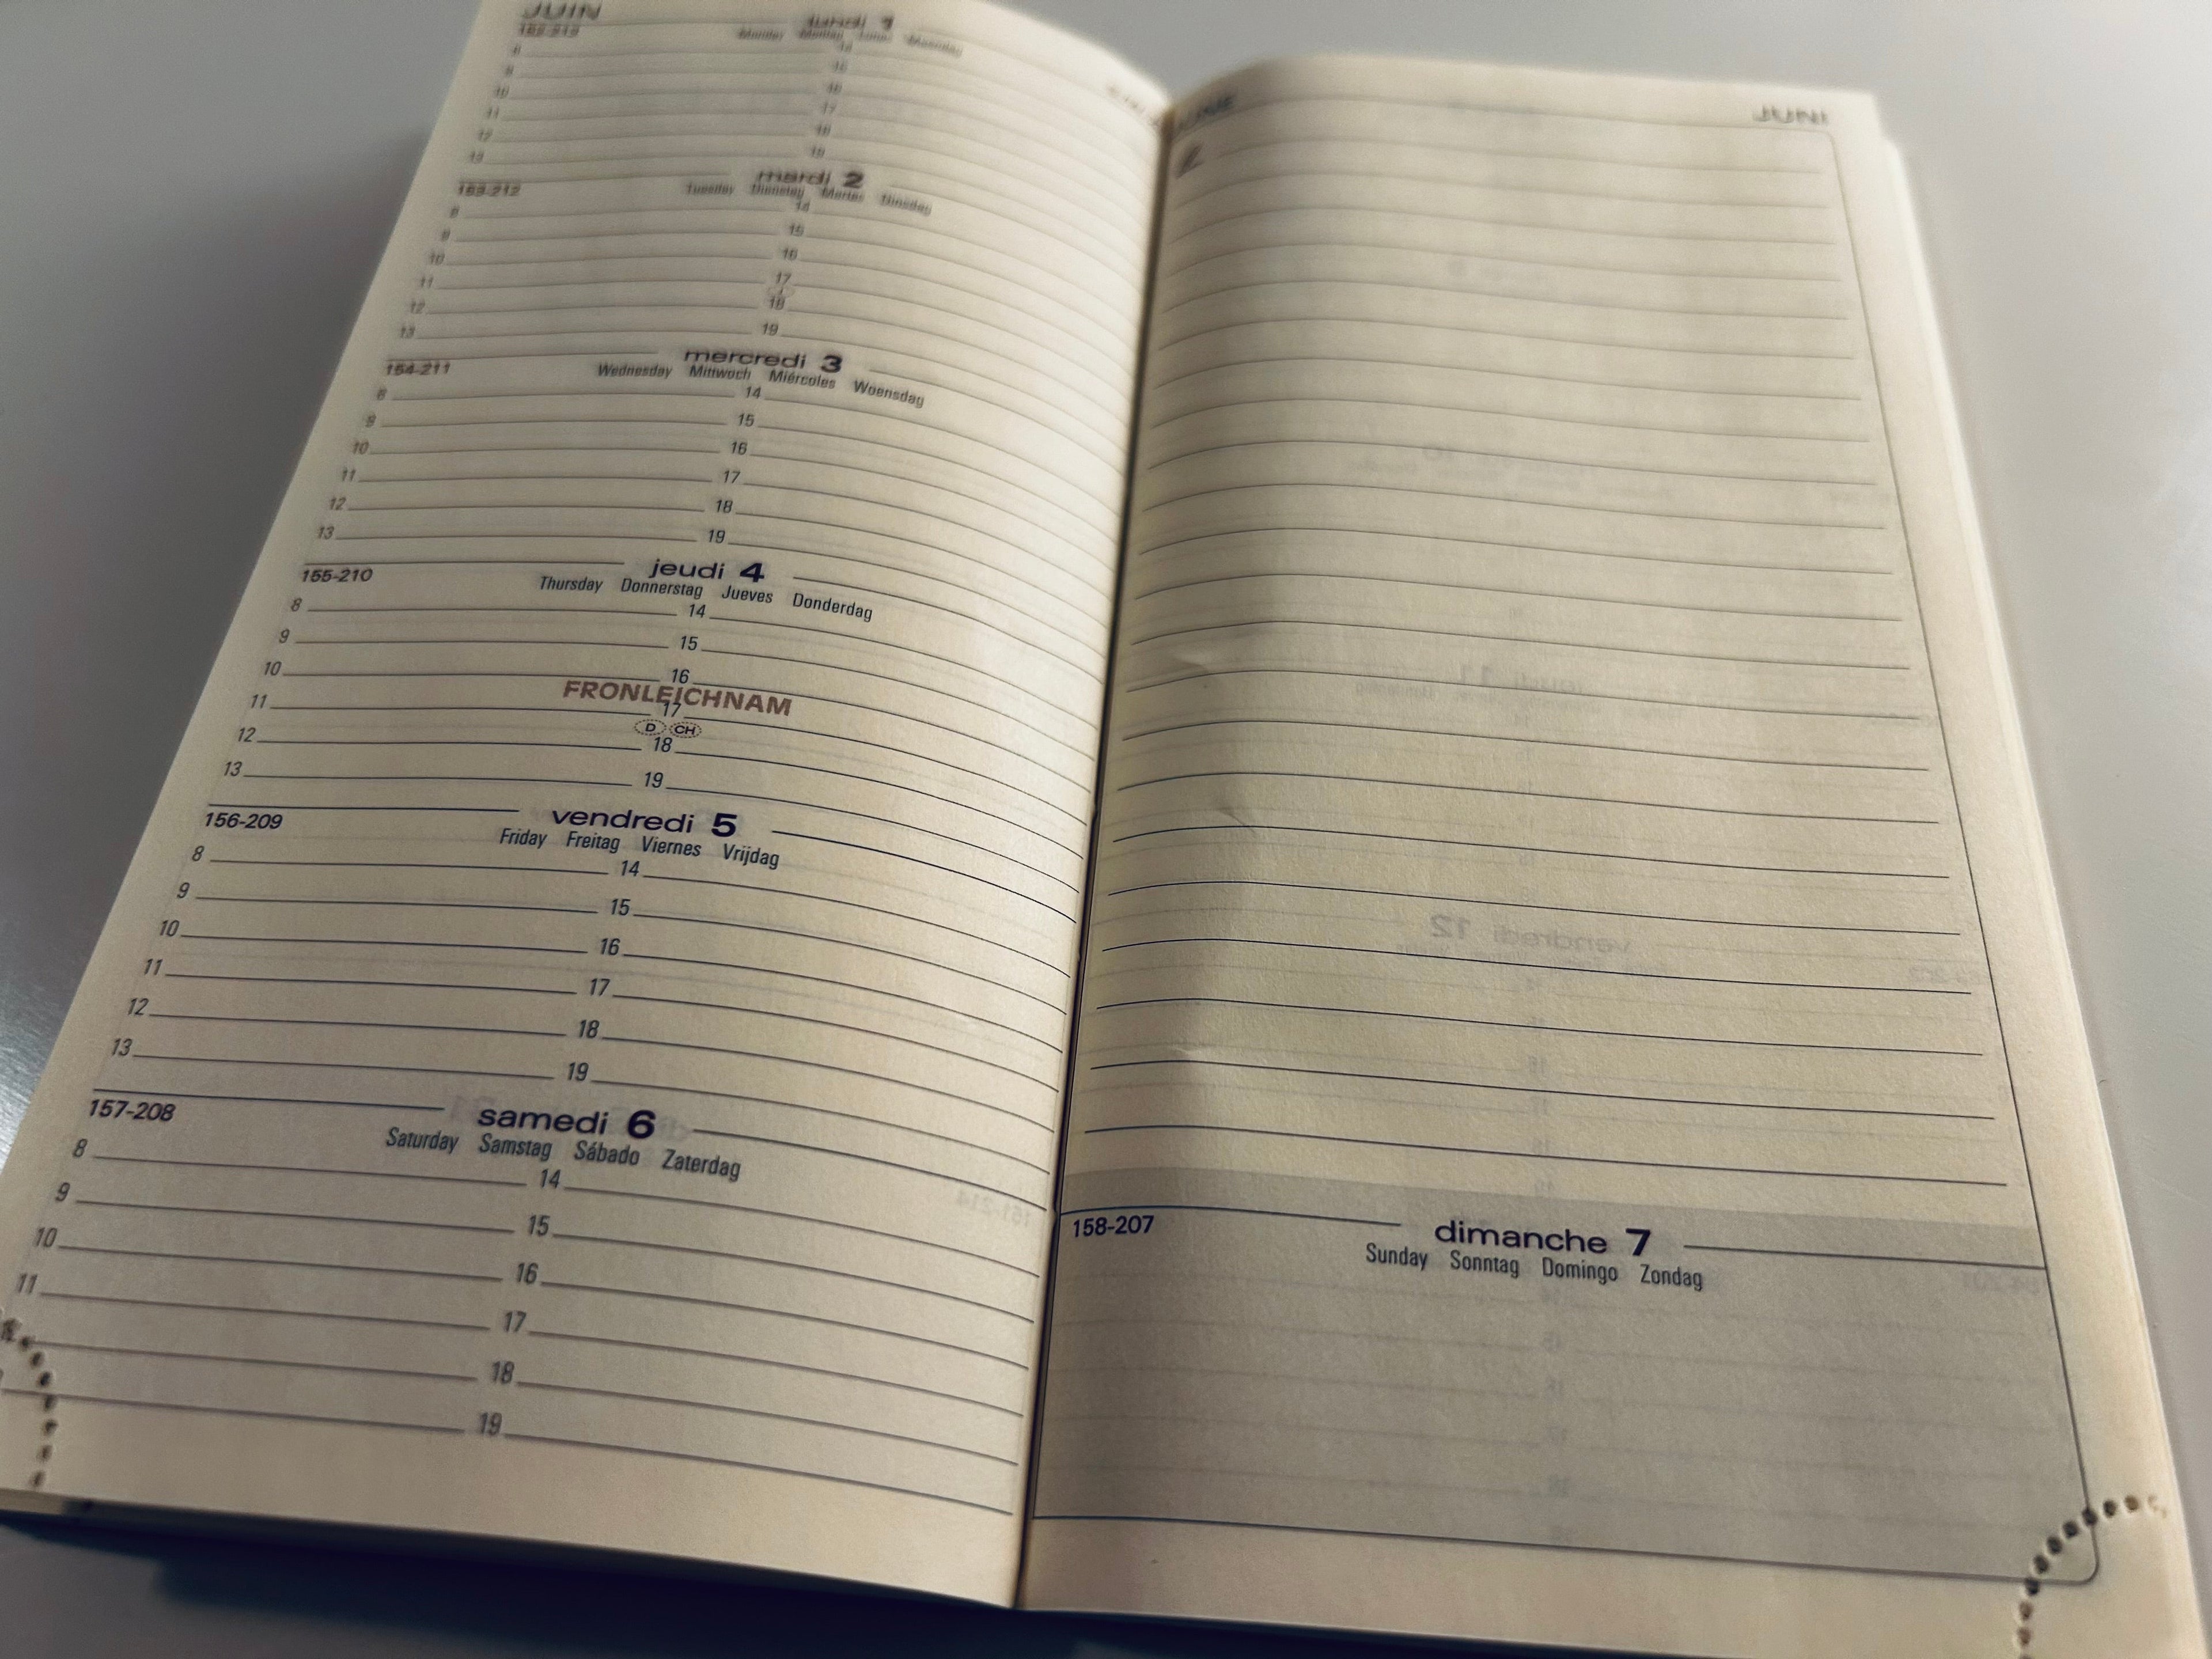 JUIN
lundi 1
152-213
Monday Montag Lunes Maandag
8
14
9
15
10
16
11
17
12
18
13
19
mardi 2
153-212
Tuesday Dienstag Martes Dinsdag
8
14
9
15
10
16
11
17
12
18
13
19
mercredi 3
154-211
Wednesday Mittwoch Miércoles Woensdag
8
14
9
15
10
16
11
17
12
18
13
19
jeudi 4
155-210
Thursday Donnerstag Jueves Donderdag
8
14
9
15
10
16
FRONLEICHNAM
11
17
D CH
12
18
13
19
vendredi 5
156-209
Friday Freitag Viernes Vrijdag
8
14
9
15
10
16
11
17
12
18
13
19
samedi 6
157-208
Saturday Samstag Sábado Zaterdag
8
14
9
15
10
16
11
17
18
19
JUNI
158-207
dimanche 7
Sunday Sonntag Domingo Zondag